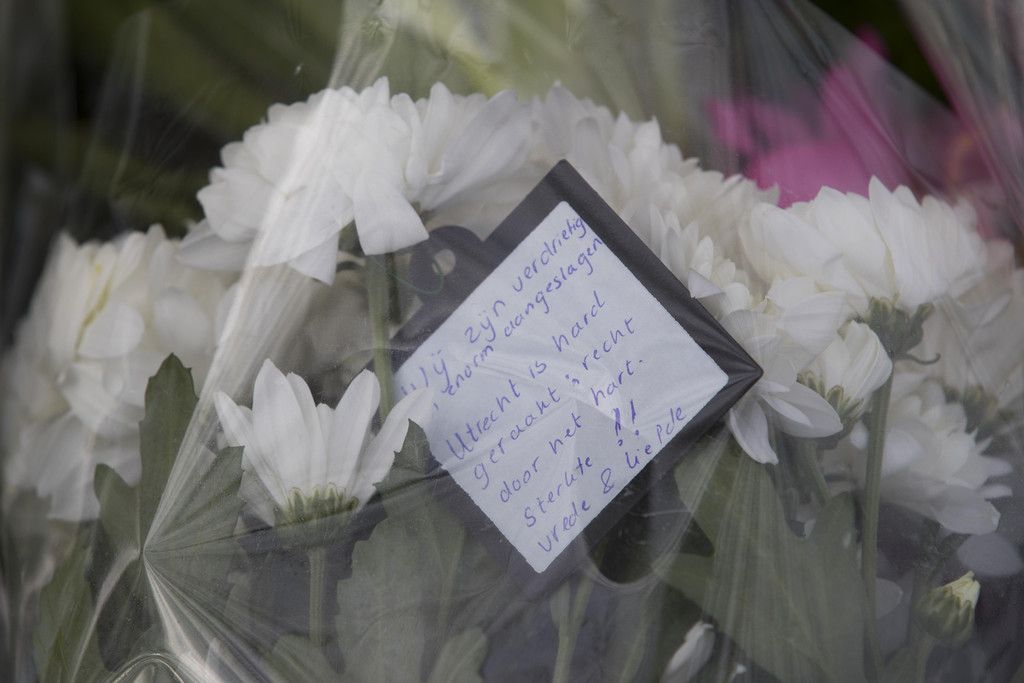 Wij zijn verdrietig
enorm aangeslagen
Utrecht is hard
geraakt, recht
door het hart.
Sterkte !!
vrede & liefde